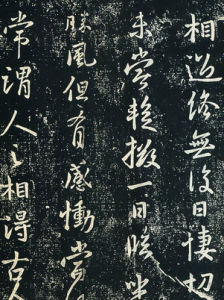 相過終無復日悽切
未嘗蹔掇一日臨坐
勝風但有感慟當
常謂人之相得古今